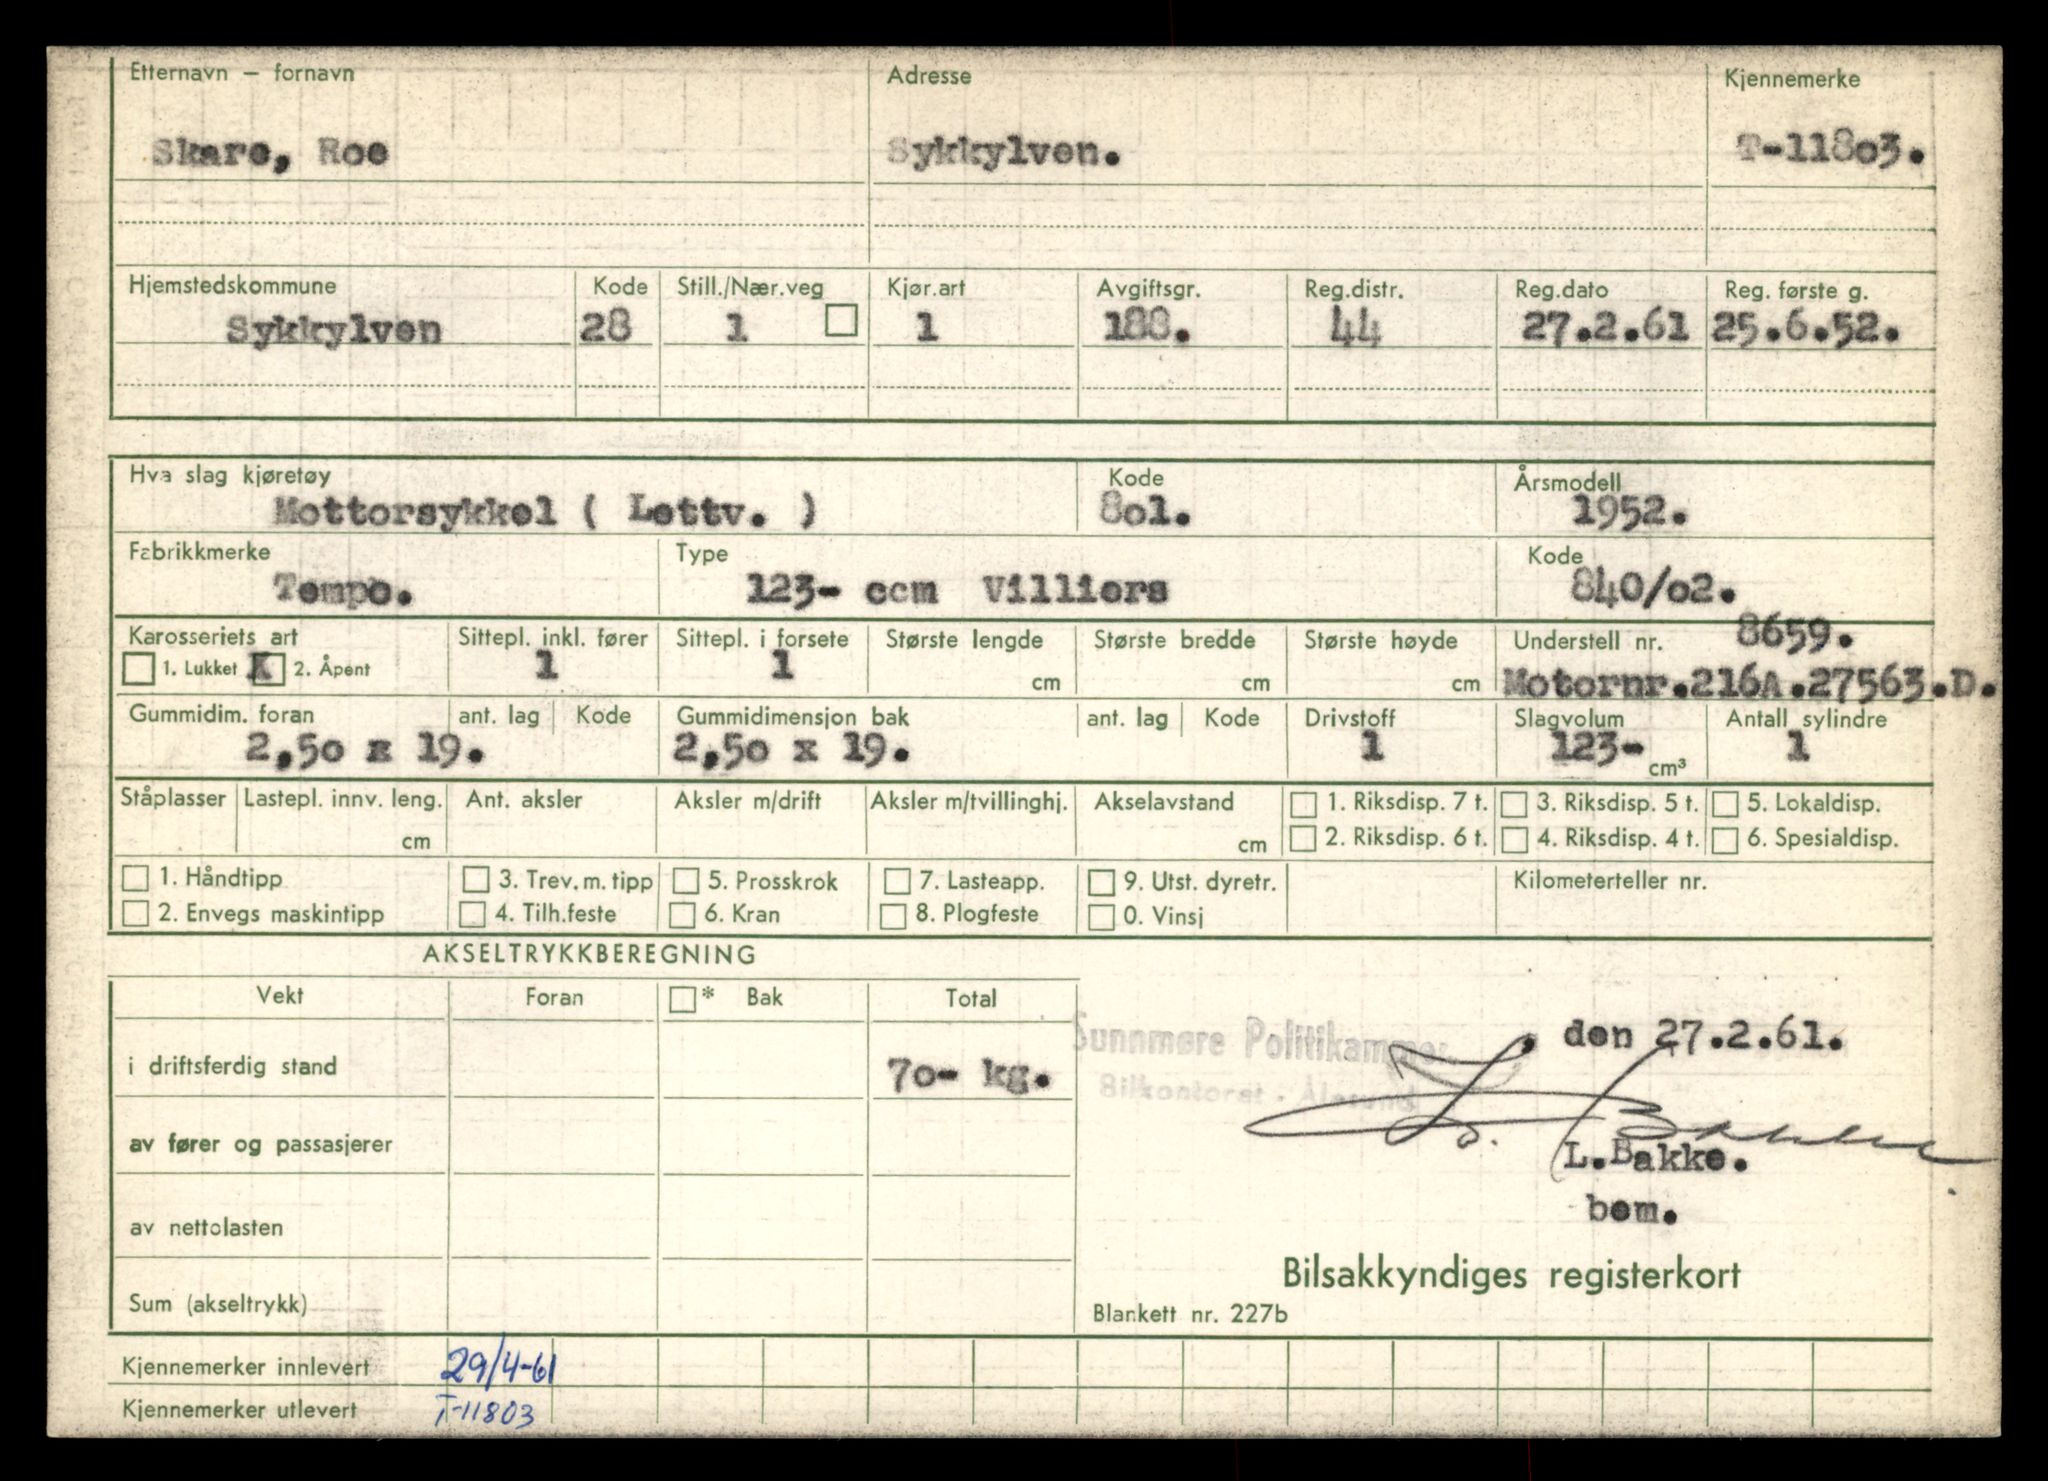 Etternavn – fornavn Adresse Kjennemerke
Skare, Roe Sykkylven. T-118o3.
Hjemstedskommune Kode Still./Nær.veg Kjør.art Avgiftsgr. Reg.distr. Reg.dato Reg. første g.
Sykkylven 28 1 1 188. 44 27.2.61 25.6.52.
Hva slag kjøretøy Kode Årsmodell
Mottorsykkel ( Lettv. ) 8o1. 1952.
Fabrikkmerke Type Kode
Tempo. 123- ccm Villiers 840/o2.
Karosseriets art Sittepl. inkl. fører Sittepl. i forsete Største lengde Største bredde Største høyde Understell nr. 8659.
1. Lukket X 2. Åpent 1 1 cm cm cm Motornr.216A.27563.D.
Gummidim. foran ant. lag Kode Gummidimensjon bak ant. lag Kode Drivstoff Slagvolum Antall sylindre
2,5o x 19. 2,5o x 19. 1 123- cm³ 1
Ståplasser Lastepl. innv. leng. Ant. aksler Aksler m/drift Aksler m/tvillinghj. Akselavstand 1. Riksdisp. 7 t. 3. Riksdisp. 5 t. 5. Lokaldisp.
cm cm 2. Riksdisp. 6 t. 4. Riksdisp. 4 t. 6. Spesialdisp.
1. Håndtipp 3. Trev. m. tipp 5. Prosskrok 7. Lasteapp. 9. Utst. dyretr. Kilometerteller nr.
2. Envegs maskintipp 4. Tilh.feste 6. Kran 8. Plogfeste 0. Vinsj
AKSELTRYKKBEREGNING
Vekt Foran * Bak Total
Sunnmøre Politikammer , den 27.2.61.
i driftsferdig stand 7o- kg.
Bilkontoret - Ålesund
L. Bakke
av fører og passasjerer
L.Bakke.
bem.
av nettolasten
Bilsakkyndiges registerkort
Sum (akseltrykk) Blankett nr. 227b
Kjennemerker innlevert 29/4-61
Kjennemerker utlevert T-11803